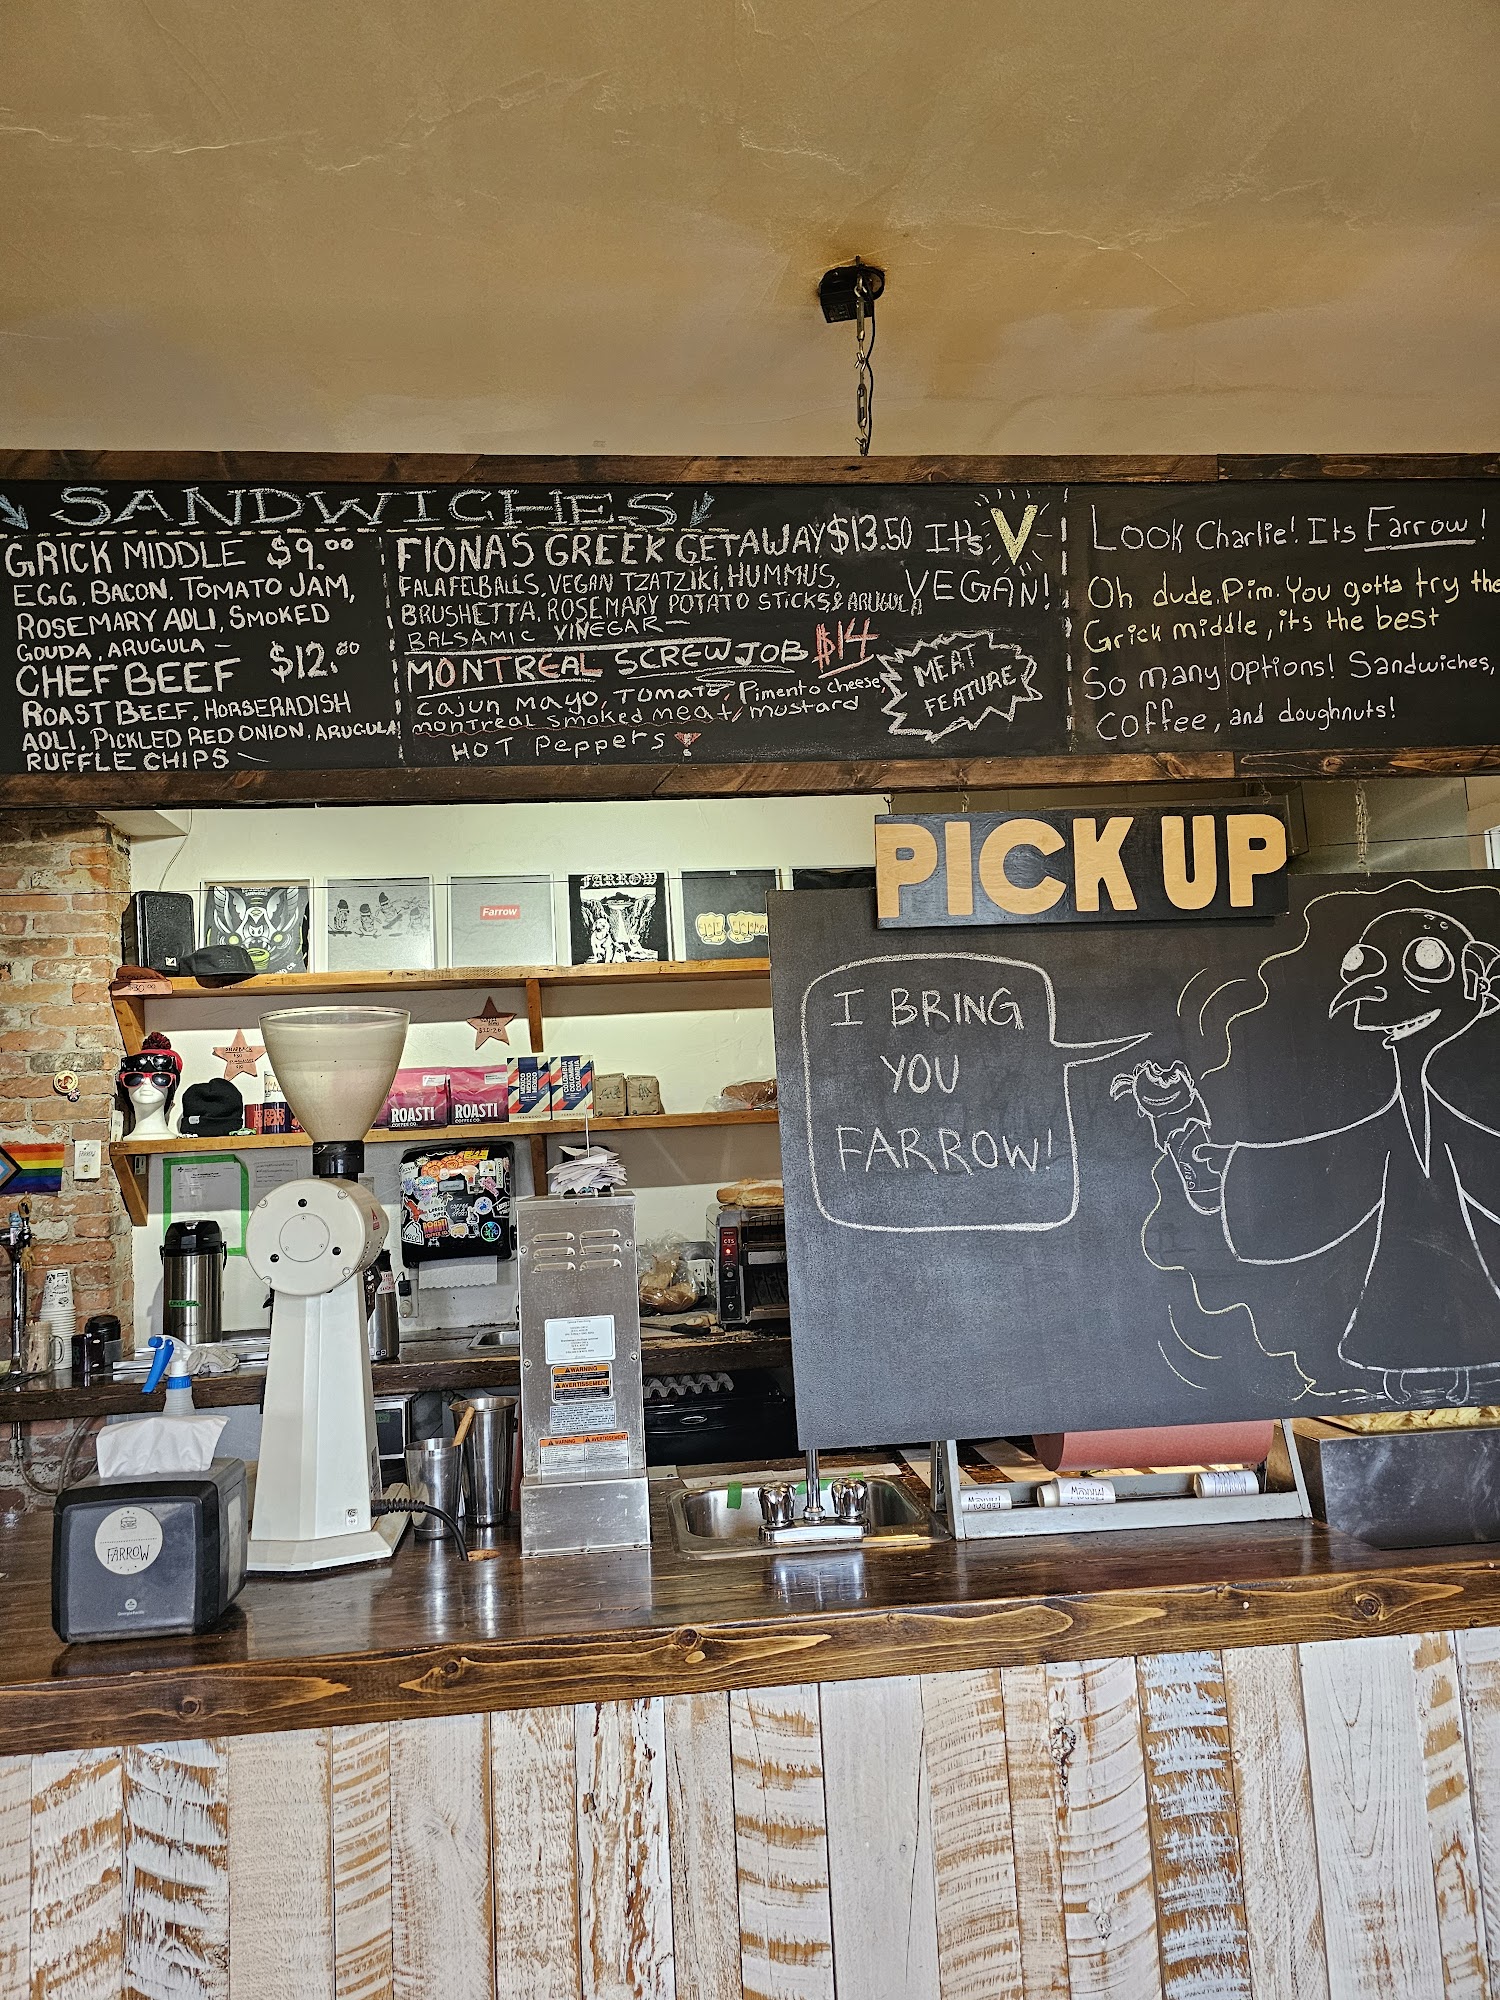 SANDWICHES
GRICK MIDDLE $9.00
EGG, BACON, TOMATO JAM,
ROSEMARY AOLI, SMOKED
GOUDA, ARUGULA -
CHEF BEEF $12.00
ROAST BEEF, HORSERADISH
AOLI, PICKLED RED ONION, ARUGULA
RUFFLE CHIPS
FIONA'S GREEK GETAWAY $13.50
FALAFELBALLS, VEGAN TZATZIKI, HUMMUS,
BRUSHETTA, ROSEMARY POTATO STICKS & ARUGULA
BALSAMIC VINEGAR -
Its V
VEGAN!
MONTREAL SCREWJOB $14
cajun mayo, TOMATE, Pimento cheese
montreal smoked meat, mustard
HOT Peppers
MEAT
FEATURE
Look Charlie! Its Farrow!
Oh dude, Pim. You gotta try the
Grick middle, its the best
So many options! Sandwiches,
coffee, and doughnuts!
PICK UP
I BRING
YOU
FARROW!
FARROW
Farrow
ROASTI
COFFEE CO.
ROASTI
COFFEE CO.
MEXICO
COLOMBIA
ROASTI
WARNING
AVERTISSEMENT
WARNING AVERTISSEMENT
FARROW
Georgia-Pacific